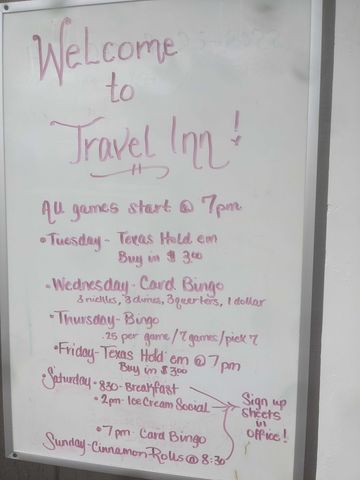 Welcome
to
Travel Inn!
All games start @ 7pm
• Tuesday - Texas Hold em
Buy in $ 3.00
• Wednesday - Card Bingo
3 nickles, 3 dimes, 3 quarters, 1 dollar
• Thursday - Bingo
.25 per game / 7 games / pick 7
• Friday - Texas Hold em @ 7pm
Buy in $ 3.00
• Saturday - 8:30 - Breakfast
• 2pm - Ice Cream Social
• 7pm - Card Bingo
Sunday - Cinnamon Rolls @ 8:30
Sign up
sheets
in
Office!